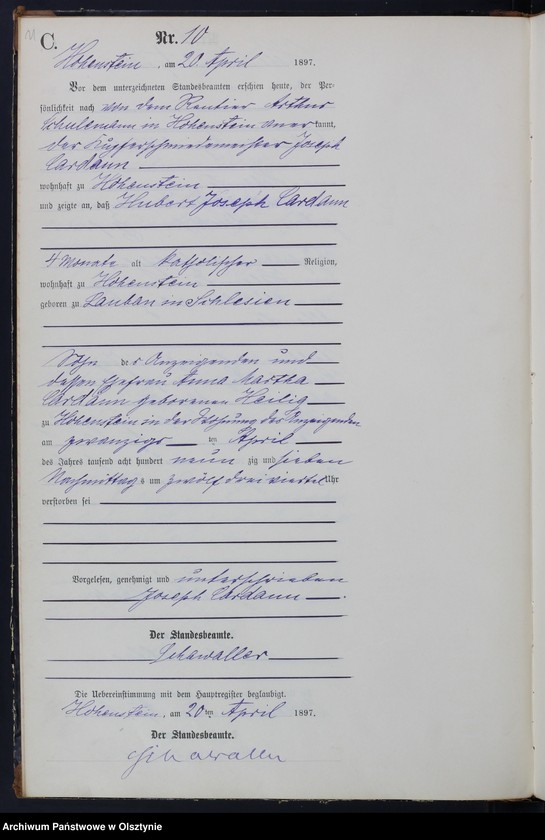 C.
Nr. 10
Hohenstein, am 20. April 1897.
Vor dem unterzeichneten Standesbeamten erschien heute, der Per-
sönlichkeit nach von dem Rentier Arthur
Schultmann in Hohenstein anerkannt,
der Kupferschmiedemeister Joseph
Cardann
wohnhaft zu Hohenstein
und zeigte an, daß Hubert Joseph Cardann
4 Monate alt katholischer Religion,
wohnhaft zu Hohenstein
geboren zu Lauban in Schlesien
Sohn des Anzeigenden und
dessen Ehefrau Anna Martha
Cardann geborenen Heilig
zu Hohenstein in der Wohnung des Anzeigenden
am zwanzigsten April
des Jahres tausend acht hundert neunzig und sieben
Nachmittags um zwölf dreiviertel Uhr
verstorben sei
Vorgelesen, genehmigt und unterschrieben
Joseph Cardann
Der Standesbeamte.
Schawaller
Die Uebereinstimmung mit dem Hauptregister beglaubigt.
Hohenstein, am 20ten April 1897.
Der Standesbeamte.
Schawaller
Archiwum Państwowe w Olsztynie